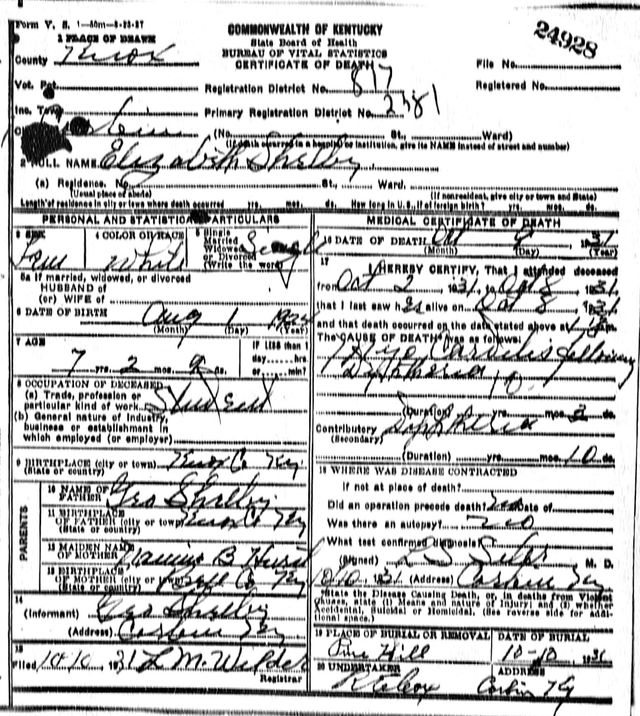 Form V. S. 1-50m-5-23-27
COMMONWEALTH OF KENTUCKY
State Board of Health
BUREAU OF VITAL STATISTICS
CERTIFICATE OF DEATH
24928
1 PLACE OF DEATH
County Knox
File No.
Registered No.
Vot. Pct
Registration District No. 817
Inc. Town
Primary Registration District No. 2381
(No. St., Ward)
(If death occurred in a hospital or institution, give its NAME instead of street and number)
2 FULL NAME Elizabeth Shelby
(a) Residence. No. St., Ward.
(Usual place of abode) (If nonresident, give city or town and State)
Length of residence in city or town where death occurred yrs. mos. ds. How long in U.S., if of foreign birth? yrs. mos. ds.
PERSONAL AND STATISTICAL PARTICULARS
3 SEX Fem
4 COLOR OR RACE White
5 Single Married Widowed or Divorced (Write the word) Single
5a If married, widowed, or divorced
HUSBAND of
(or) WIFE of
6 DATE OF BIRTH Aug 1 1924
(Month) (Day) (Year)
7 AGE 7 yrs. 2 mos. ds.
IF LESS than 1 day hrs. or min.?
8 OCCUPATION OF DECEASED
(a) Trade, profession or particular kind of work Student
(b) General nature of industry, business or establishment in which employed (or employer)
9 BIRTHPLACE (city or town) Knox Co Ky
(State or country)
PARENTS
10 NAME OF FATHER Geo Shelby
11 BIRTHPLACE OF FATHER (city or town) Knox Co Ky
(State or country)
12 MAIDEN NAME OF MOTHER B Hurst
13 BIRTHPLACE OF MOTHER (city or town) Bell Co Ky
(State or country)
14
(Informant) Geo Shelby
(Address) Corbin Ky
15
Filed 10 10 31 L M. Wilder
Registrar
MEDICAL CERTIFICATE OF DEATH
16 DATE OF DEATH Oct 9 1931
(Month) (Day) (Year)
17
I HEREBY CERTIFY, That I attended deceased
from Oct 2 1931, to Oct 8 1931
that I last saw h alive on Oct 8 1931
and that death occurred on the date stated above at
The CAUSE OF DEATH was as follows:
following
(Duration) yrs. mos. 2 ds.
Contributory
(Secondary)
(Duration) yrs. mos. 10 ds.
18 WHERE WAS DISEASE CONTRACTED
If not at place of death?
Did an operation precede death? no Date of
Was there an autopsy? no
What test confirmed diagnosis?
(Signed) M. D.
10/10 1931 (Address) Corbin Ky
*State the Disease Causing Death, or, in deaths from Violent Causes, state (1) Means and nature of Injury; and (2) whether Accidental, Suicidal or Homicidal. (See reverse side for additional space.)
19 PLACE OF BURIAL OR REMOVAL Pine Hill
DATE OF BURIAL 10-10 1931
20 UNDERTAKER
ADDRESS Corbin Ky